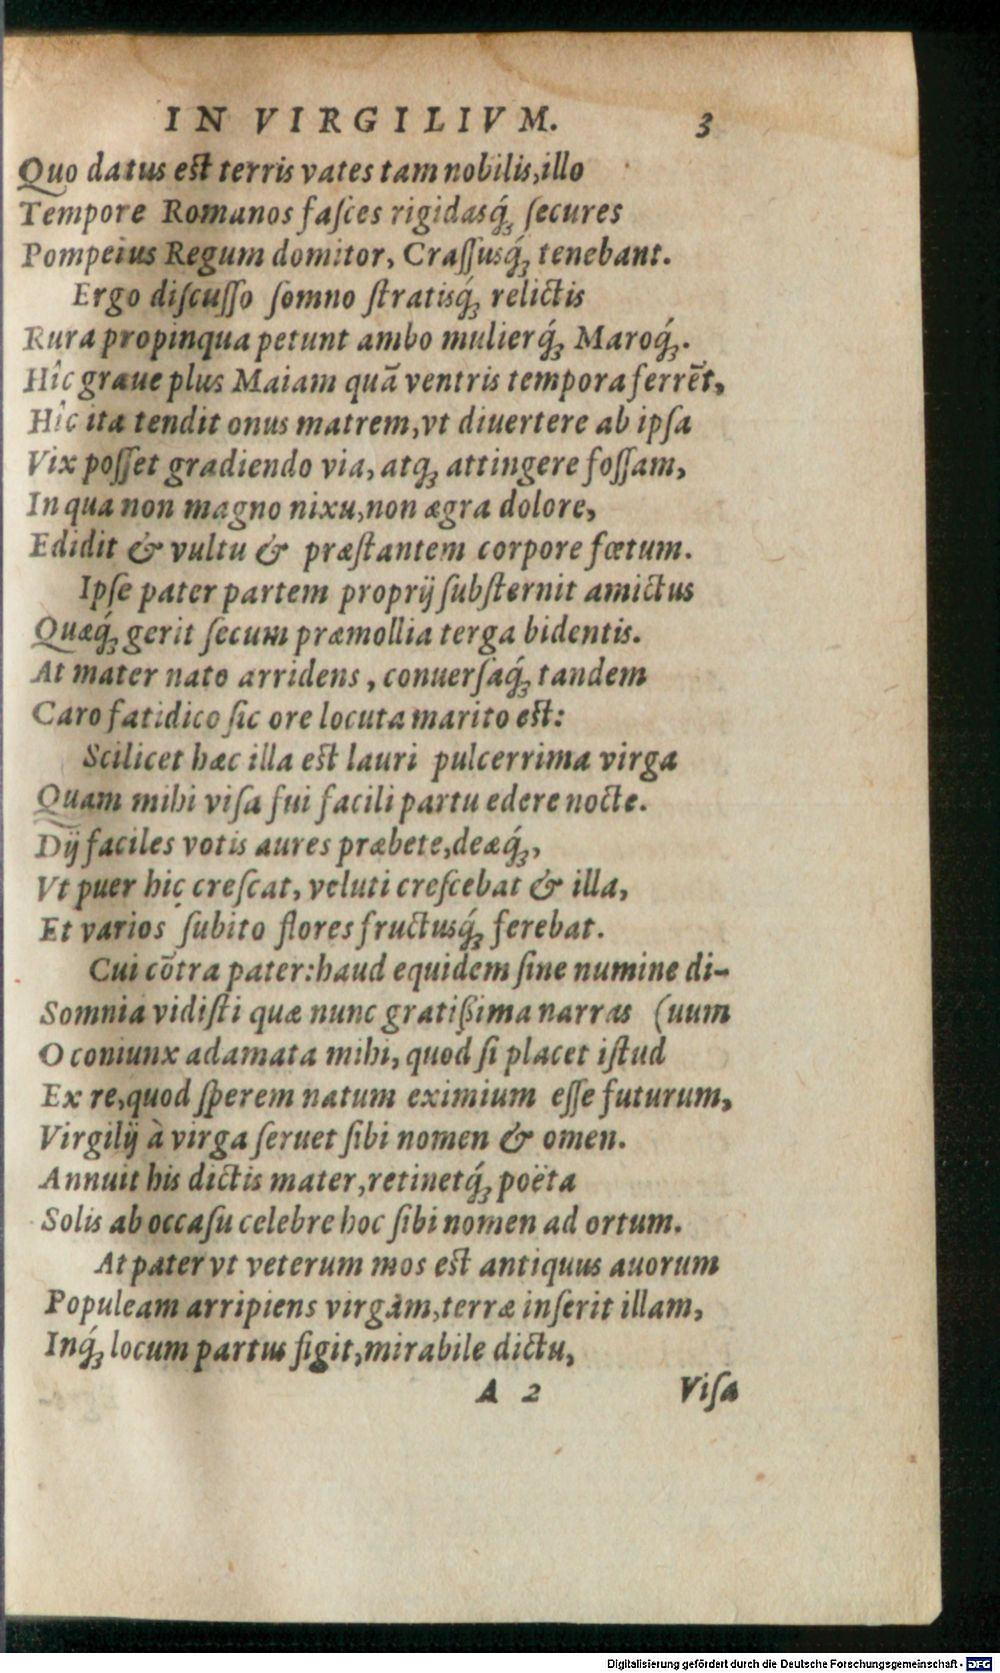 IN VIRGILIVM. 3
Quo datus est terris vates tam nobilis, illo
Tempore Romanos faſces rigidasq́ꝫ ſecures
Pompeius Regum domitor, Craſſusq́ꝫ tenebant.
Ergo diſcuſſo ſomno ſtratisq́ꝫ relictis
Rura propinqua petunt ambo mulierq́ꝫ Maroq́ꝫ.
Hîc graue plus Maiam quā ventris tempora ferrēt,
Hîc ita tendit onus matrem, vt diuertere ab ipſa
Vix poſſet gradiendo via, atqꝫ attingere foſſam,
In qua non magno nixu, non ægra dolore,
Edidit & vultu & præſtantem corpore fœtum.
Ipſe pater partem proprij ſubſternit amictus
Quæq́ꝫ gerit ſecum præmollia terga bidentis.
At mater nato arridens, conuerſaq́ꝫ tandem
Caro fatidico ſic ore locuta marito est:
Scilicet hæc illa est lauri pulcerrima virga
Quam mihi viſa fui facili partu edere nocte.
Dij faciles votis aures præbete, deæq́ꝫ,
Vt puer hic creſcat, veluti creſcebat & illa,
Et varios ſubito flores fructusq́ꝫ ferebat.
Cui cōtra pater: haud equidem ſine numine di-
Somnia vidiſti quæ nunc gratißima narras (uum
O coniunx adamata mihi, quod ſi placet iſtud
Ex re, quod ſperem natum eximium eſſe futurum,
Virgilij à virga ſeruet ſibi nomen & omen.
Annuit his dictis mater, retinetq́ꝫ poëta
Solis ab occaſu celebre hoc ſibi nomen ad ortum.
At pater vt veterum mos est antiquus auorum
Populeam arripiens virgam, terræ inſerit illam,
Inq́ꝫ locum partus figit, mirabile dictu,
A 2 Viſa
Digitalisierung gefördert durch die Deutsche Forschungsgemeinschaft - DFG